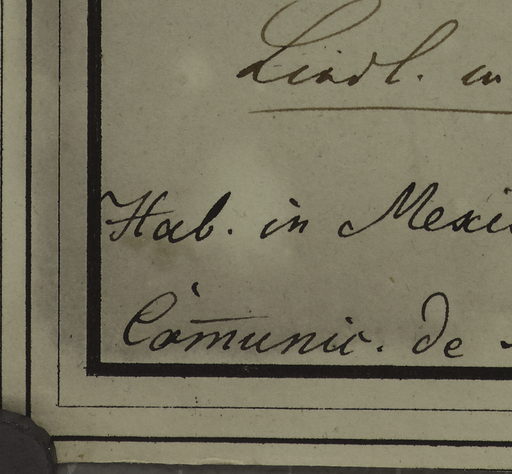 Lindl. in
Hab. in Mexi
Com̄unic. de